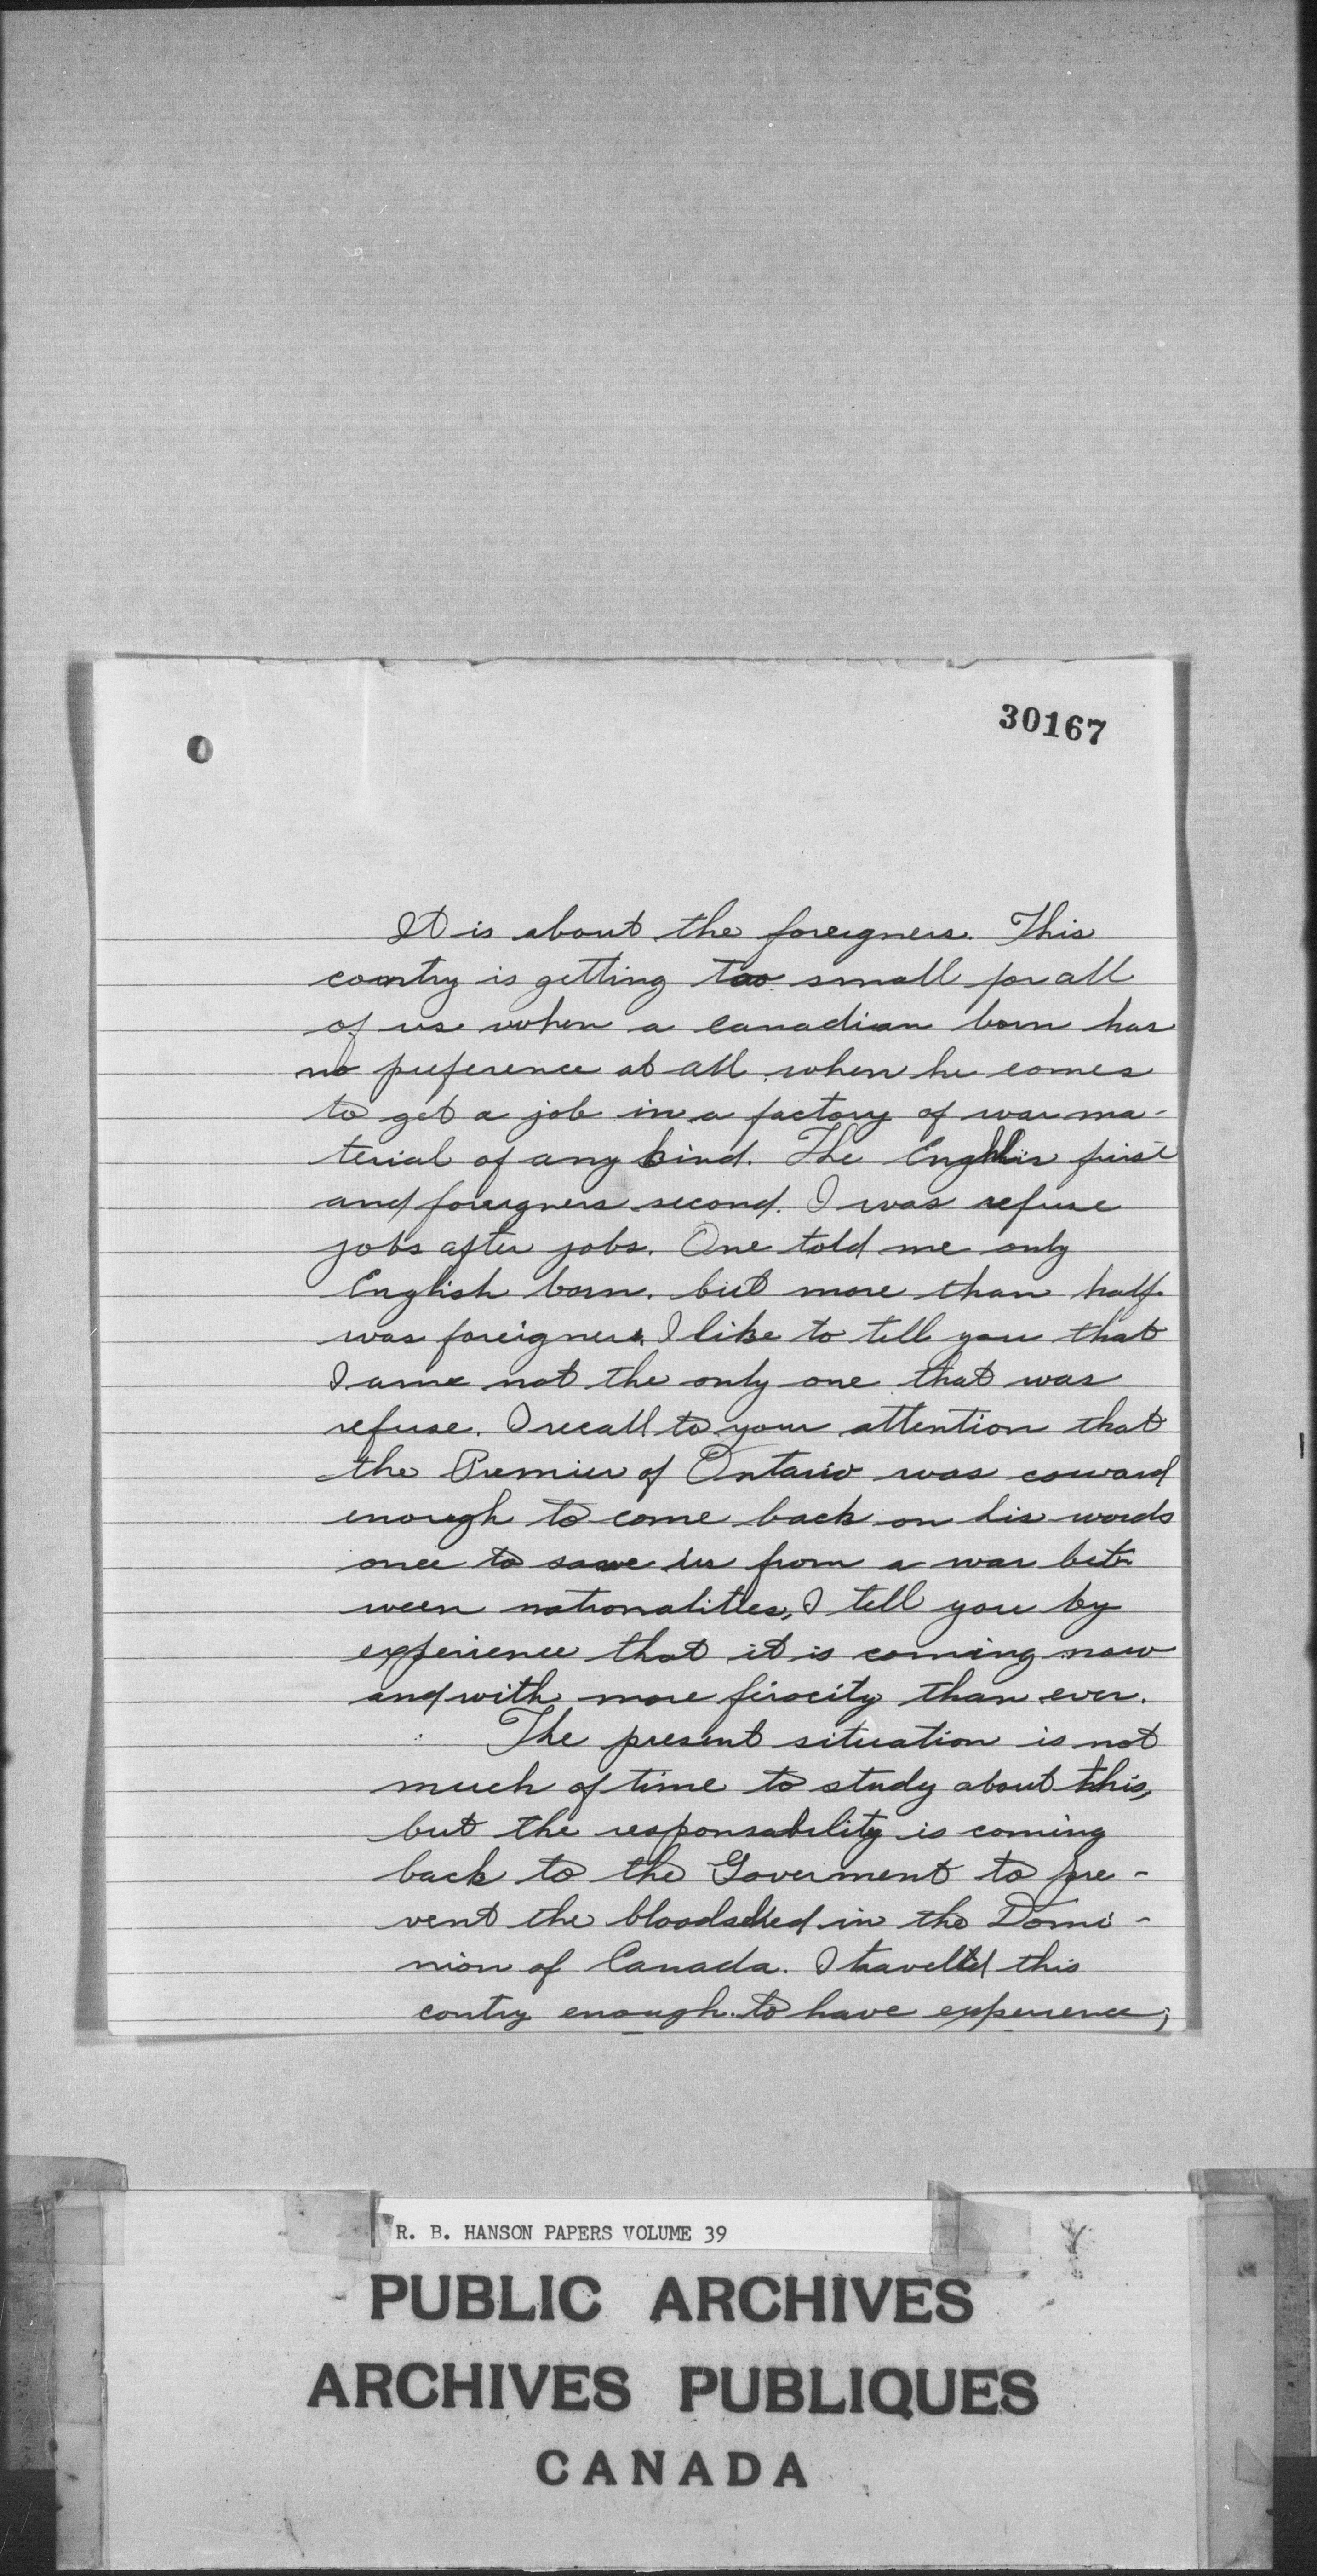 30167
It is about the foreigners. This
country is getting too small for all
of us when a Canadian born has
no preference at all when he comes
to get a job in a factory of war ma-
terial of any kind. The English first
and foreigners second. I was refuse
jobs after jobs. One told me only
English born. but more than half
was foreigners. I like to tell you that
I ame not the only one that was
refuse. I recall to your attention that
the Premier of Ontario was coward
enough to come back on his words
once to save us from a war bet-
ween nationalities, I tell you by
experience that it is coming now
and with more firocity than ever.
The present situation is not
much of time to study about this,
but the responsability is coming
back to the Goverment to pre-
vent the bloodshed in the Domi-
nion of Canada. I travelled this
contry enough to have experience;
R. B. HANSON PAPERS VOLUME 39
PUBLIC ARCHIVES
ARCHIVES PUBLIQUES
CANADA